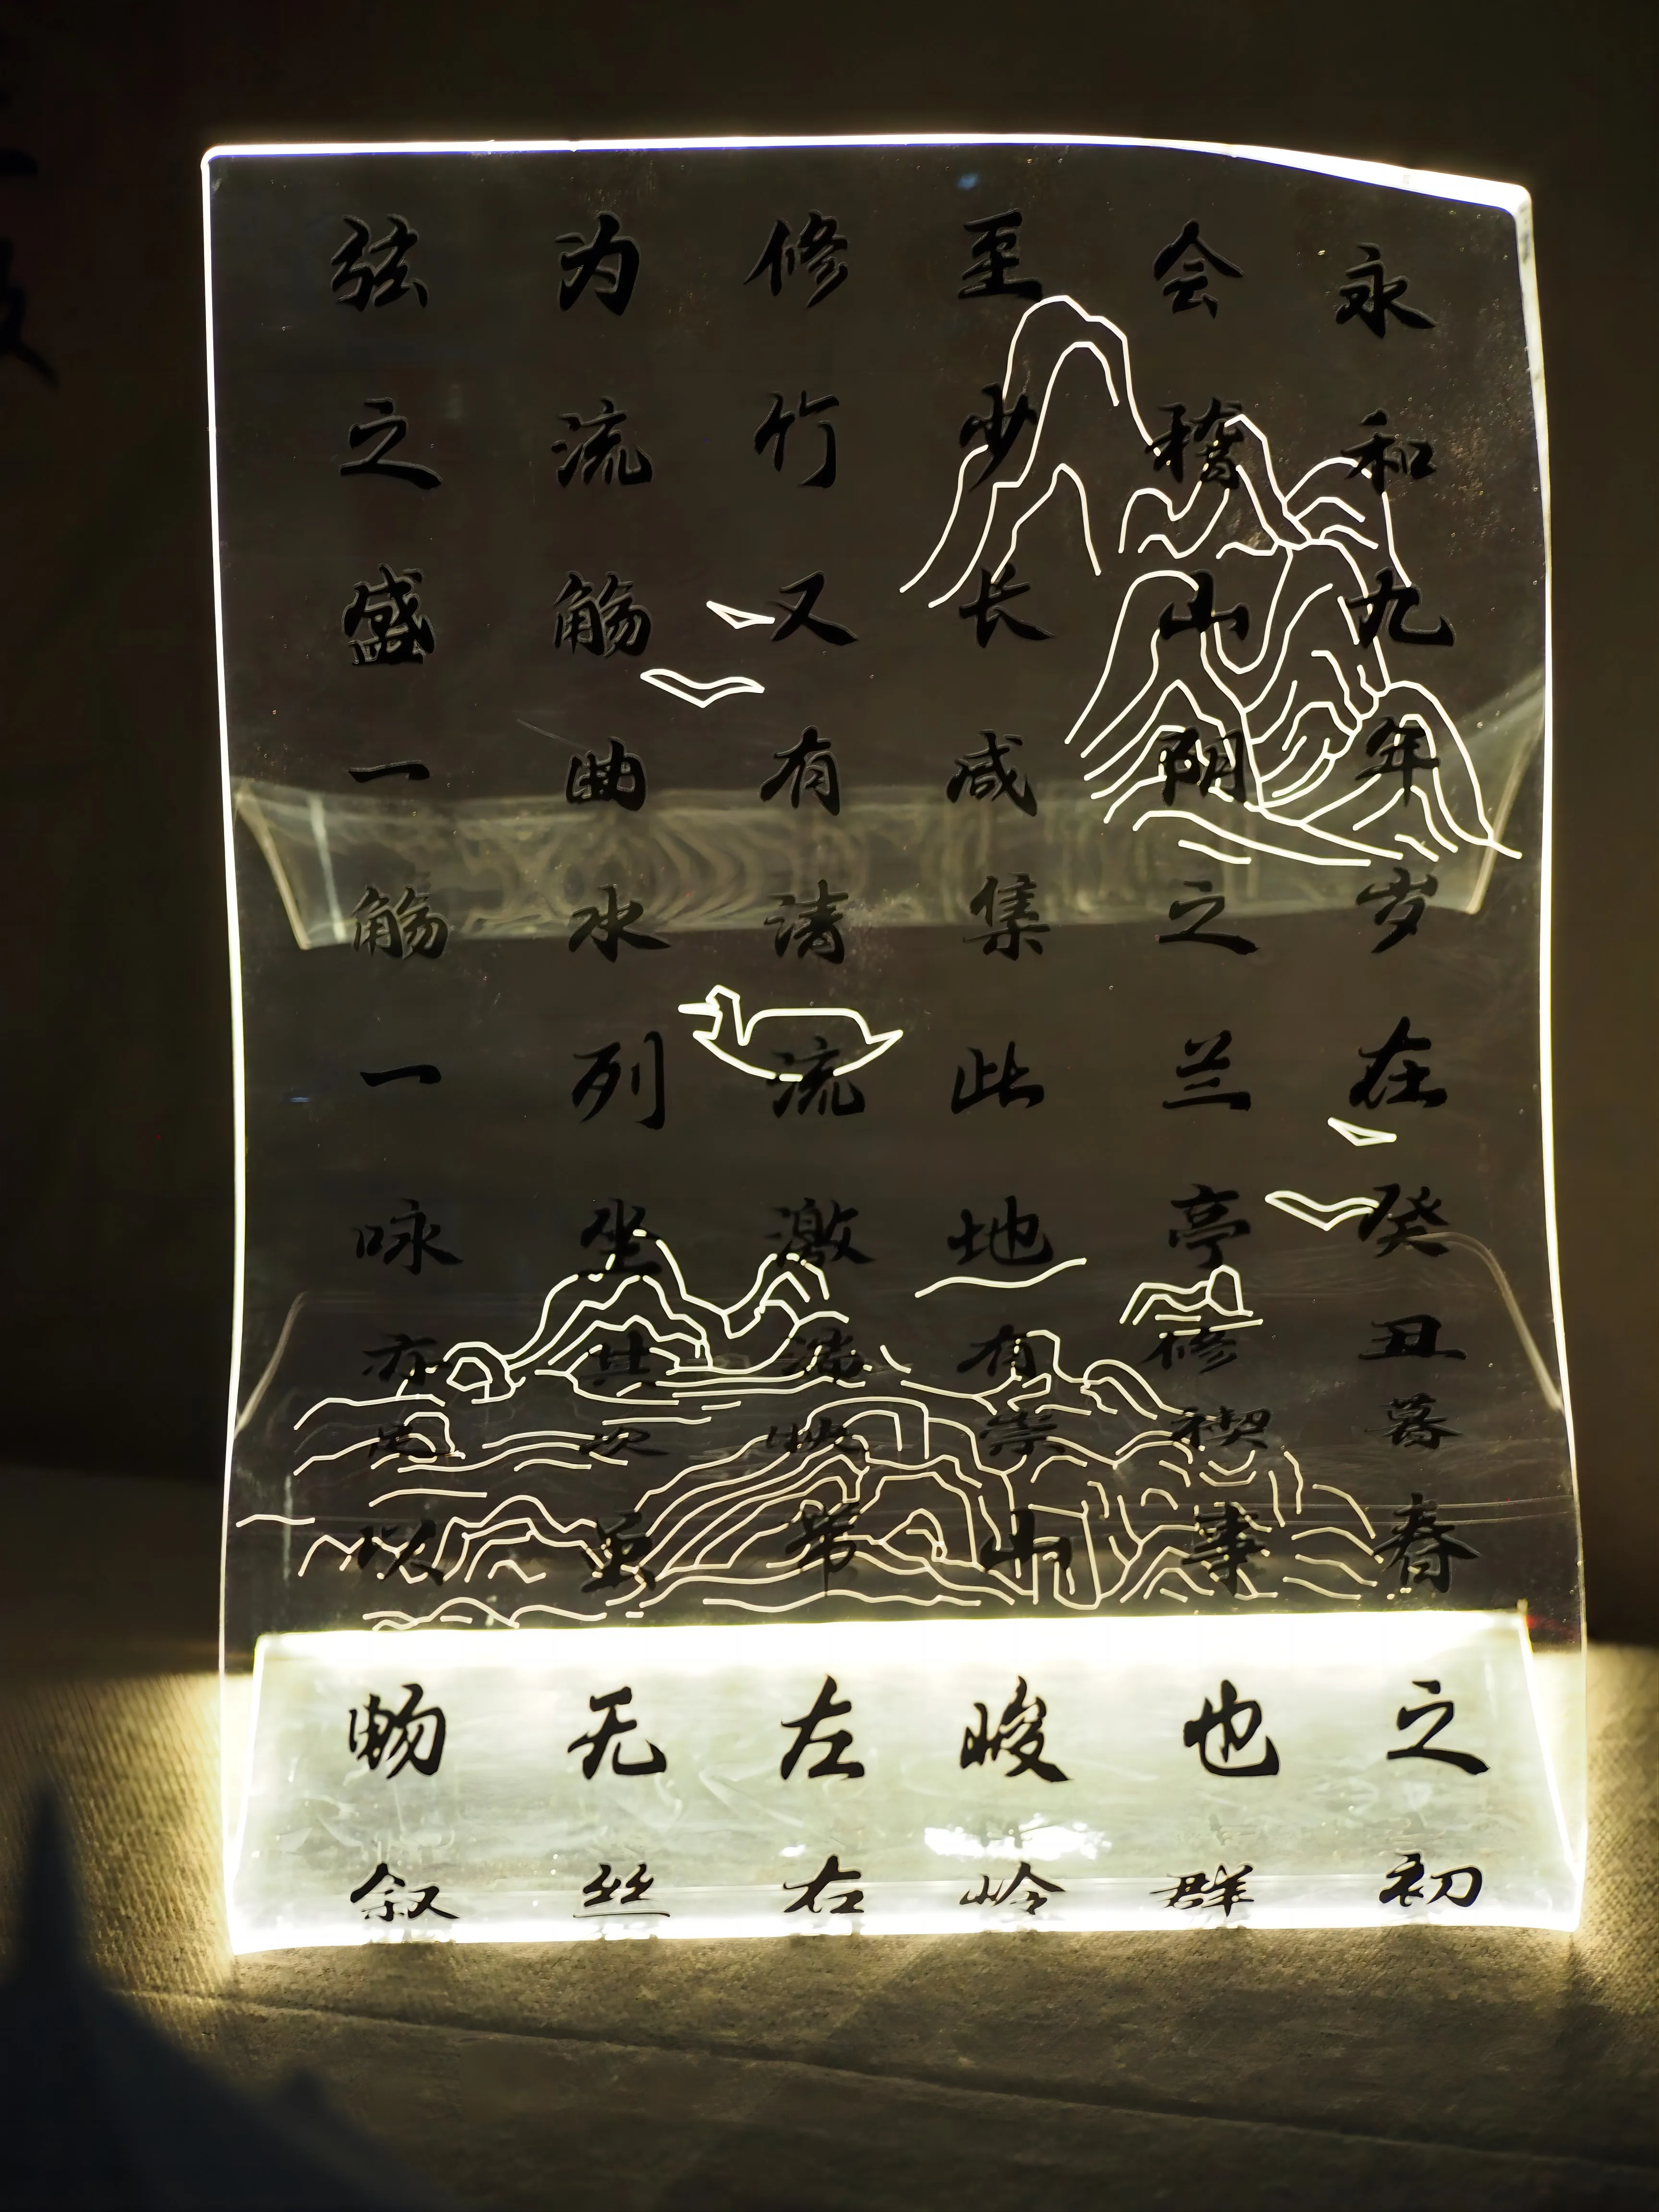 永和九年岁在癸丑暮春之初
会稽山阴之兰亭修禊事也群
至少长咸集此地有崇山峻岭
修竹又有清流激湍映带左右
为流觞曲水列坐其次虽无丝
弦之盛一觞一咏亦足以畅叙